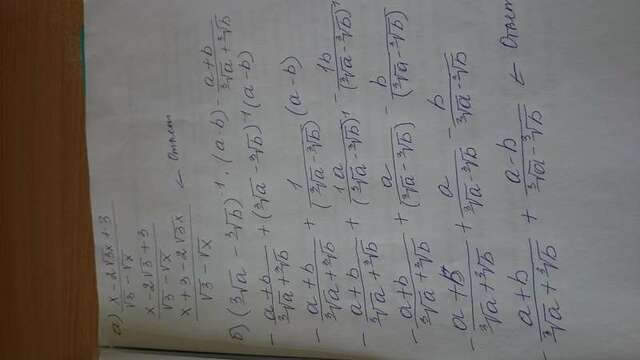 а) x-2√3x+3 / √3-√x
x-2√3+3 / √3-√x
x+3-2√3x / √3-√x ← Ответ
б) (³√a-³√b)⁻¹·(a-b)- a+b / ³√a+³√b
- a+b / ³√a+³√b +(³√a-³√b)⁻¹(a-b)
- a+b / ³√a+³√b + 1 / (³√a-³√b) (a-b)
- a+b / ³√a+³√b + 1a / (³√a-³√b)¹ - 1b / (³√a-³√b)¹
- a+b / ³√a+³√b + a / (³√a-³√b) - b / (³√a-³√b)
- a+b / ³√a+³√b + a / ³√a-³√b - b / ³√a-³√b
a+b / ³√a+³√b + a-b / ³√a-³√b ← Ответ